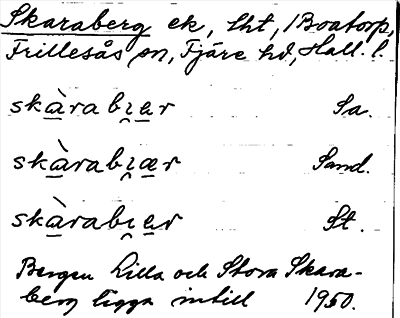 Skaraberg ek, lht, 1 Boatorp,
Frillesås sn, Fjäre hd, Hall. l.
skàrabɩ̯ær Sa.
skàrabɩ̯ær Sand.
skàrabɩ̯er St.
Bergen Lilla och Stora Skara-
berg ligga intill 1950.